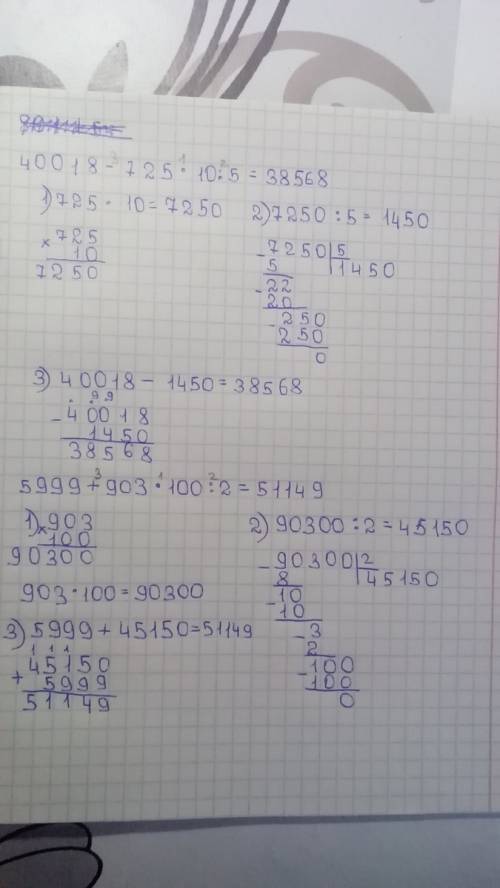 40018 - 725 · 10 : 5 = 38568
3 1 2
1) 725 · 10 = 7250
× 725
10
7250
2) 7250 : 5 = 1450
- 7250 | 5
5 1450
- 22
20
- 250
250
0
3) 40018 - 1450 = 38568
. . 9 9
- 40018
1450
38568
5999 + 903 · 100 : 2 = 51149
3 1 2
1) × 903
100
90300
903 · 100 = 90300
2) 90300 : 2 = 45150
- 90300 | 2
8 45150
- 10
10
- 3
2
- 100
100
0
3) 5999 + 45150 = 51149
1 1 1
+ 45150
5999
51149